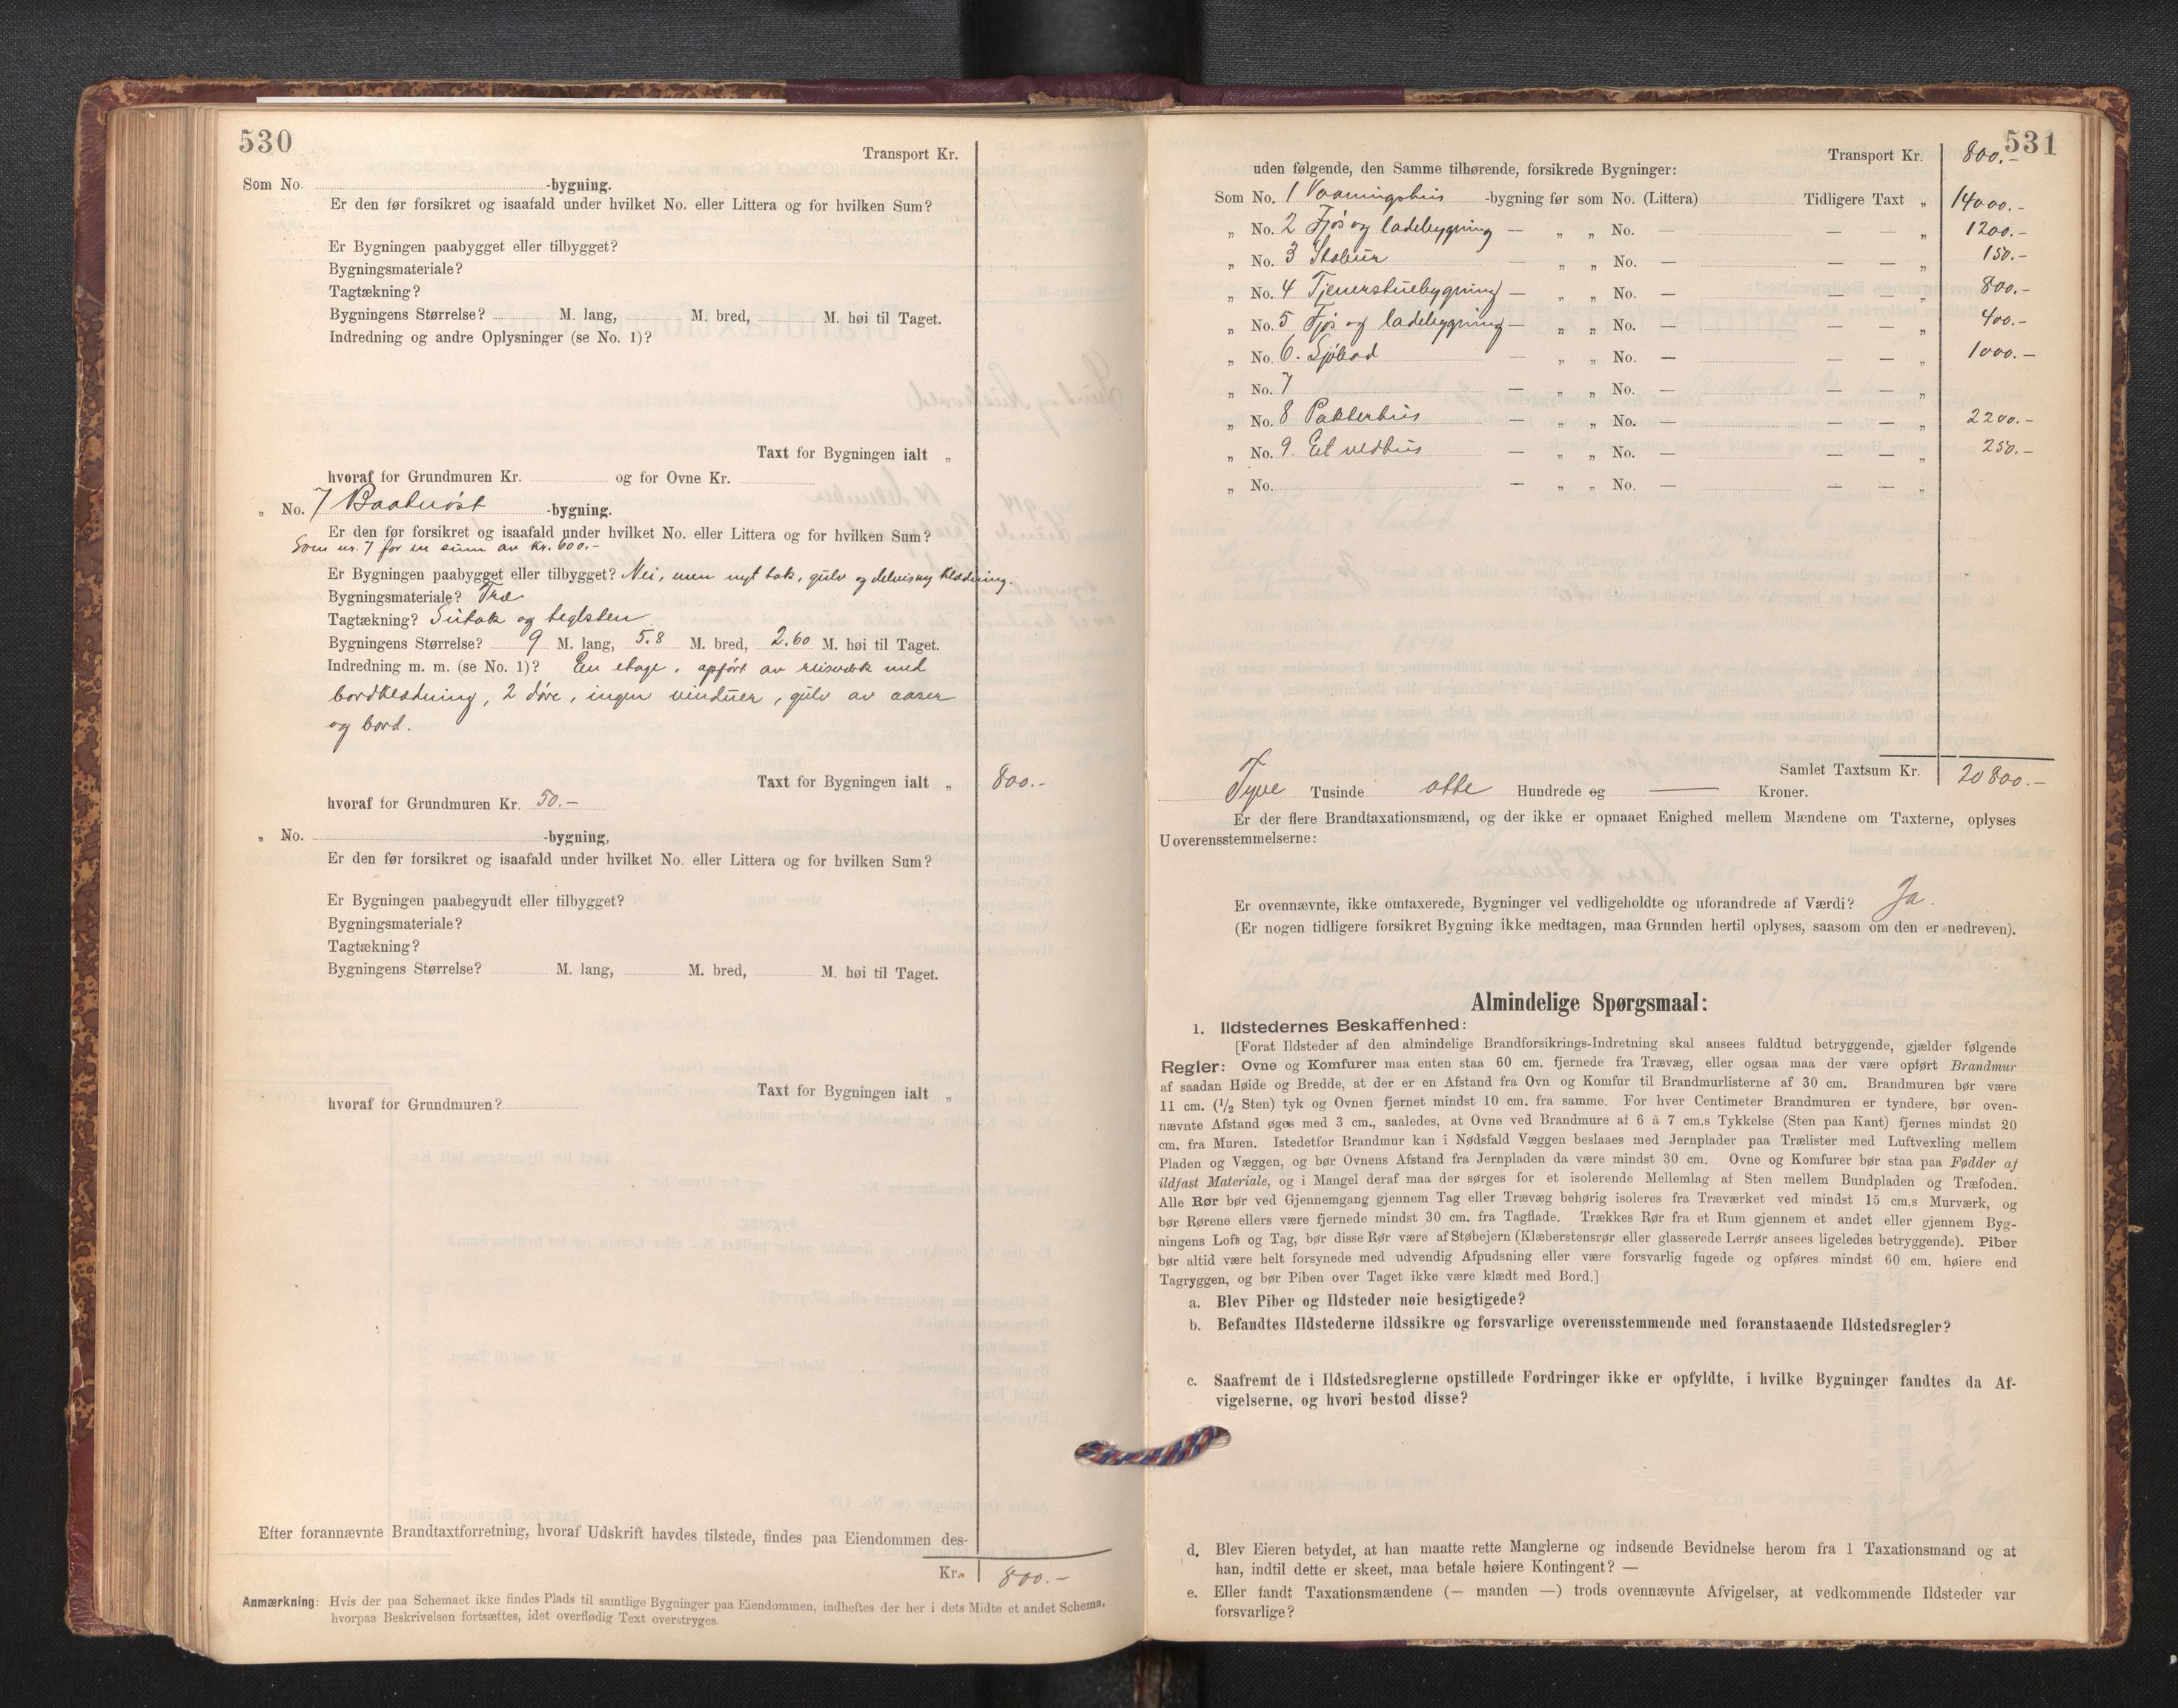 530
Transport Kr.
Som No. -bygning.
Er den før forsikret og isaafald under hvilket No. eller Littera og for hvilken Sum?
Er Bygningen paabygget eller tilbygget?
Bygningsmateriale?
Tagtækning?
Bygningens Størrelse? M. lang, M. bred, M. høi til Taget.
Indredning og andre Oplysninger (se No. 1)?
Taxt for Bygningen ialt „
hvoraf for Grundmuren Kr. og for Ovne Kr.
„ No. 7 Baatnøst -bygning.
Er den før forsikret og isaafald under hvilket No. eller Littera og for hvilken Sum?
Som nr. 7 for en sum av kr. 600.-
Er Bygningen paabygget eller tilbygget? Nei, men nyt tak, gulv og delvis ny klædning.
Bygningsmateriale? Træ
Tagtækning? Sutak og teglsten
Bygningens Størrelse? 9 M. lang, 5.8 M. bred, 2.60 M. høi til Taget.
Indredning m. m. (se No. 1)? En etage, opført av reisverk med
bordklædning, 2 døre, ingen vinduer, gulv av aaser
og bord.
Taxt for Bygningen ialt „ 800.-
hvoraf for Grundmuren Kr. 50.-
„ No. -bygning,
Er den før forsikret og isaafald under hvilket No. eller Littera og for hvilken Sum?
Er Bygningen paabegyudt eller tilbygget?
Bygningsmateriale?
Tagtækning?
Bygningens Størrelse? M. lang, M. bred, M. høi til Taget.
Taxt for Bygningen ialt „
hvoraf for Grundmuren?
Efter forannævnte Brandtaxtforretning, hvoraf Udskrift havdes tilstede, findes paa Eiendommen des-
Kr. 800.-
Anmærkning: Hvis der paa Schemaet ikke findes Plads til samtlige Bygninger paa Eiendommen, indheftes der her i dets Midte et andet Schema,
hvorpaa Beskrivelsen fortsættes, idet overflødig Text overstryges.
531
Transport Kr. 800.-
uden følgende, den Samme tilhørende, forsikrede Bygninger:
Som No. 1 Vaaningshus -bygning før som No. (Littera) Tidligere Taxt „ 14000.-
„ No. 2 Fjøs og ladebygning — „ „ No. — — — „ 1200.-
„ No. 3 Stabur — „ „ No. — — — „ 150.-
„ No. 4 Tjenerstuebygning — „ „ No. — — — „ 800.-
„ No. 5 Fjøs og ladebygning — „ „ No. — — — „ 400.-
„ No. 6. Sjøbod — „ „ No. — — — „ 1000.-
„ No. 7 — „ „ No. — — — „
„ No. 8 Pakkerhus — „ „ No. — — — „ 2200.-
„ No. 9. Et vedhus — „ „ No. — — — „ 250.-
„ No. — „ „ No. — — — „
Samlet Taxtsum Kr. 20800.-
Tyve Tusinde otte Hundrede og — Kroner.
Er der flere Brandtaxationsmænd, og der ikke er opnaaet Enighed mellem Mændene om Taxterne, oplyses
Uoverensstemmelserne:
Er ovennævnte, ikke omtaxerede, Bygninger vel vedligeholdte og uforandrede af Værdi? Ja.
(Er nogen tidligere forsikret Bygning ikke medtagen, maa Grunden hertil oplyses, saasom om den er nedreven).
Almindelige Spørgsmaal:
1. Ildstedernes Beskaffenhed:
[Forat Ildsteder af den almindelige Brandforsikrings-Indretning skal ansees fuldtud betryggende, gjælder følgende
Regler: Ovne og Komfurer maa enten staa 60 cm. fjernede fra Trævæg, eller ogsaa maa der være opført Brandmur
af saadan Høide og Bredde, at der er en Afstand fra Ovn og Komfur til Brandmurlisterne af 30 cm. Brandmuren bør være
11 cm. (1/2 Sten) tyk og Ovnen fjernet mindst 10 cm. fra samme. For hver Centimeter Brandmuren er tyndere, bør oven-
nævnte Afstand øges med 3 cm., saaledes, at Ovne ved Brandmure af 6 à 7 cm.s Tykkelse (Sten paa Kant) fjernes mindst 20
cm. fra Muren. Istedetfor Brandmur kan i Nødsfald Væggen beslaaes med Jernplader paa Trælister med Luftvexling mellem
Pladen og Væggen, og bør Ovnens Afstand fra Jernpladen da være mindst 30 cm. Ovne og Komfurer bør staa paa Fødder af
ildfast Materiale, og i Mangel deraf maa der sørges for et isolerende Mellemlag af Sten mellem Bundpladen og Træfoden.
Alle Rør bør ved Gjennemgang gjennem Tag eller Trævæg behørig isoleres fra Træværket ved mindst 15 cm.s Murværk, og
bør Rørene ellers være fjernede mindst 30 cm. fra Tagflade. Trækkes Rør fra et Rum gjennem et andet eller gjennem Byg-
ningens Loft og Tag, bør disse Rør være af Støbejern (Klæberstensrør eller glasserede Lerrør ansees ligeledes betryggende). Piber
bør altid være helt forsynede med udvendig Afpudsning eller være forsvarlig fugede og opføres mindst 60 cm. høiere end
Tagryggen, og bør Piben over Taget ikke være klædt med Bord.]
a. Blev Piber og Ildsteder nøie besigtigede?
b. Befandtes Ildstederne ildssikre og forsvarlige overensstemmende med foranstaaende Ildstedsregler?
c. Saafremt de i Ildstedsreglerne opstillede Fordringer ikke er opfyldte, i hvilke Bygninger fandtes da Af-
vigelserne, og hvori bestod disse?
d. Blev Eieren betydet, at han maatte rette Manglerne og indsende Bevidnelse herom fra 1 Taxationsmand og at
han, indtil dette er skeet, maa betale høiere Kontingent? —
e. Eller fandt Taxationsmændene (— manden —) trods ovennævnte Afvigelser, at vedkommende Ildsteder var
forsvarlige?